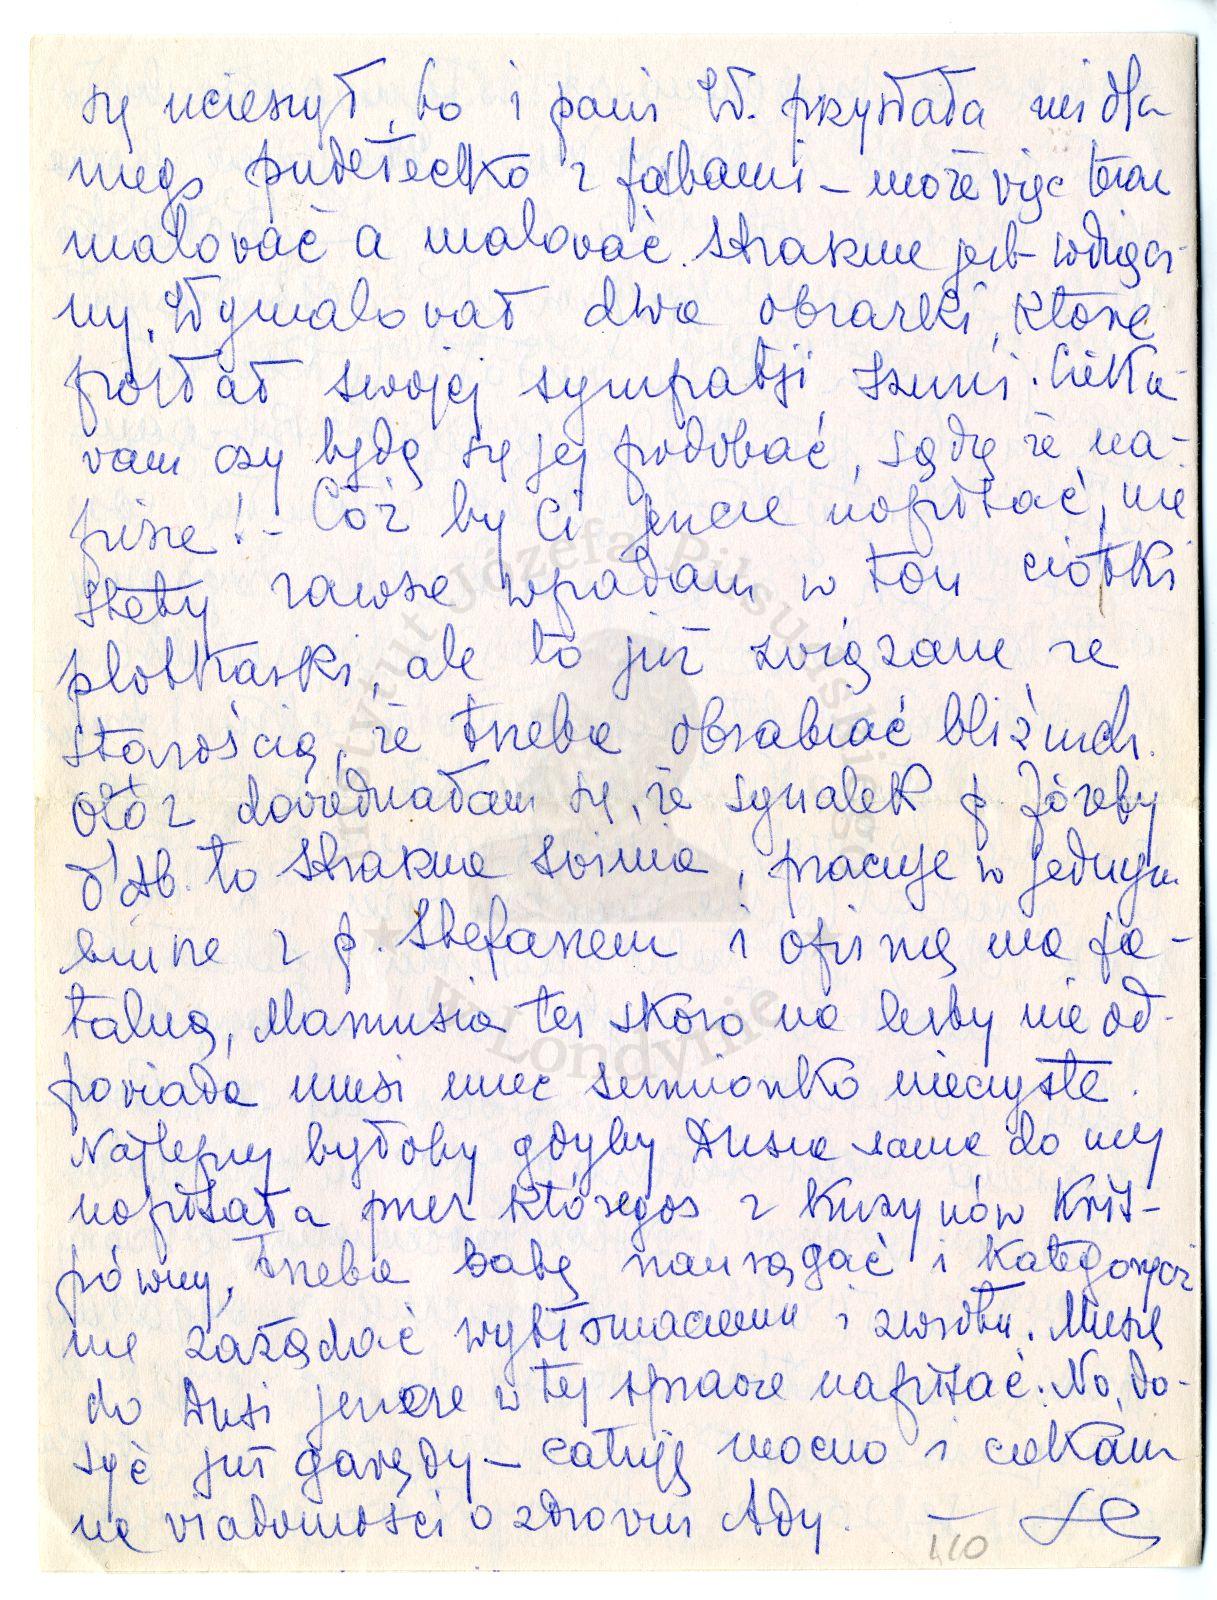 się ucieszył, bo i pani Wł. przysłała mi dla
niego pudełeczko z farbami – może więc teraz
malować a malować. Strasznie jest wdzięcz-
ny. Wymalował dwa obrazki, które
posłał swojej sympatji, Izuni. Cieka-
wam czy będą się jej podobać, sądzę że na-
pisze! – Cóż by Ci jeszcze napisać, nie
stety zawsze wpadam w ton ciotki
plotkarki, ale to już związane ze
starością, że trzeba obrabiać bliźnich.
Otóż dowiedziałam się, że synalek p. Józefy
d'Ab. to straszna świnia, pracuje w jednym
biurze z p. Stefanem i opinię ma fa-
talną, Mamusia też skoro na listy nie od-
powiada musi mieć sumionko nieczyste.
Najlepiej byłoby gdyby Dusia sama do niej
napisała przez któregoś z kuzynów
trzeba babę i kategorycz
nie zażądać wytłomaczenia i zwrotu. Muszę
do Dusi jeszcze w tej sprawie napisać. No, do-
syć już gawędy – całuję mocno i czekam
na wiadomości o zdrowiu Ady. –
110
Instytut Józefa Piłsudskiego
w Londynie